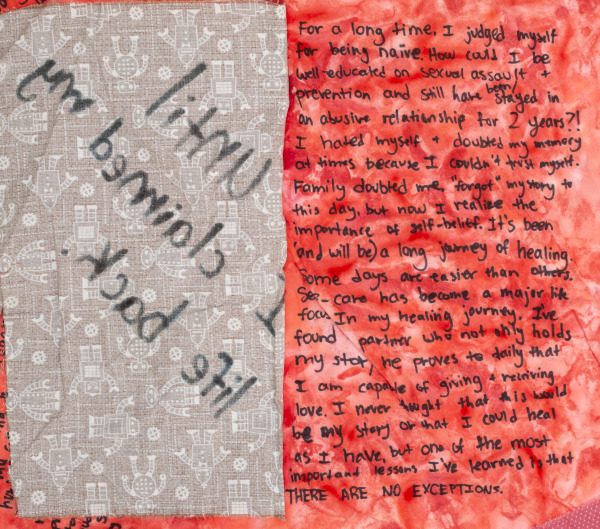 Until
I claimed my
life back.
For a long time, I judged myself
for being naïve. How could I be
well-educated on sexual assault +
prevention and still have been stayed in
an abusive relationship for 2 years?!
I hated myself + doubted my memory
at times because I couldn't trust myself.
Family doubted me, "forgot" my story to
this day, but now I realize the
importance of self-belief. It's been
(and will be) a long journey of healing.
Some days are easier than others.
Self-care has become a major life
focus. In my healing journey, I've
found partner who not only holds
my story, he proves to daily that
I am capable of giving + receiving
love. I never thought that this would
be my story or that I could heal
as I have, but one of the most
important lessons I've learned is that
THERE ARE NO EXCEPTIONS.